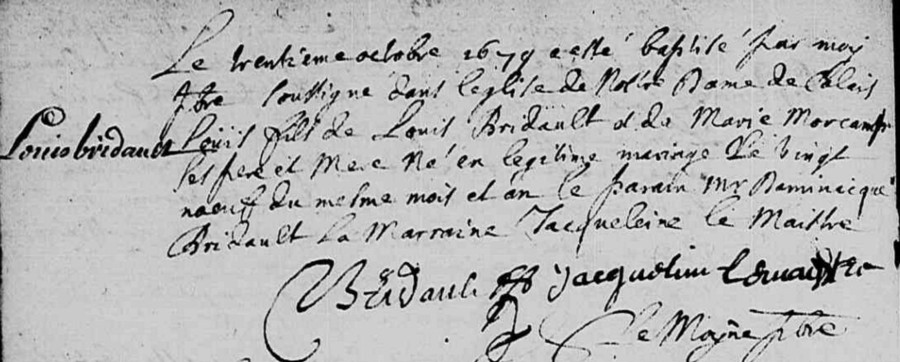 Le trentieme octobre 1679 a esté baptisé par moy
Pbre soussigné dans leglise de Notre Dame de Calais
Louis bridault
Loüis fils de Louis Bridault et de Marie Morcamp
ses pere et Mere Né en legitime mariage Le vingt
naeuf du mesme mois et an le parain Mr Daminicque
Bridault La Marraine Jacqueleine le Maistre
Bridault Jacquelin Lemaistre
Le Moyne pbre